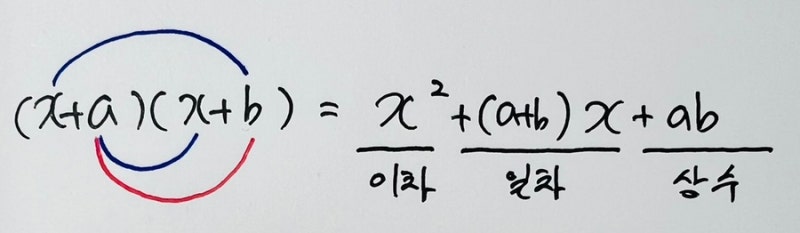 (x+a)(x+b) = x²+(a+b)x+ab
이차 일차 상수